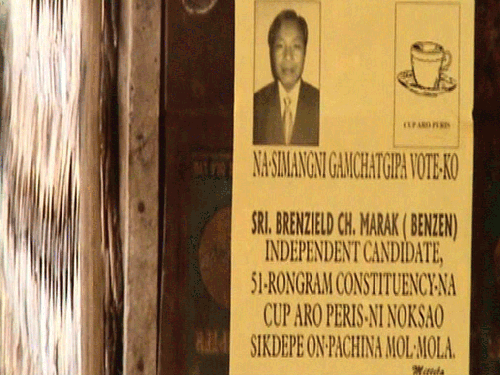 CUP ARO PERIS
NA·SIMANGNI GAMCHATGIPA VOTE-KO
SRI. BRENZIELD CH. MARAK ( BENZEN)
INDEPENDENT CANDIDATE,
51-RONGRAM CONSTITUENCY-NA
CUP ARO PERIS-NI NOKSAO
SIKDEPE ON·PACHINA MOL·MOLA.